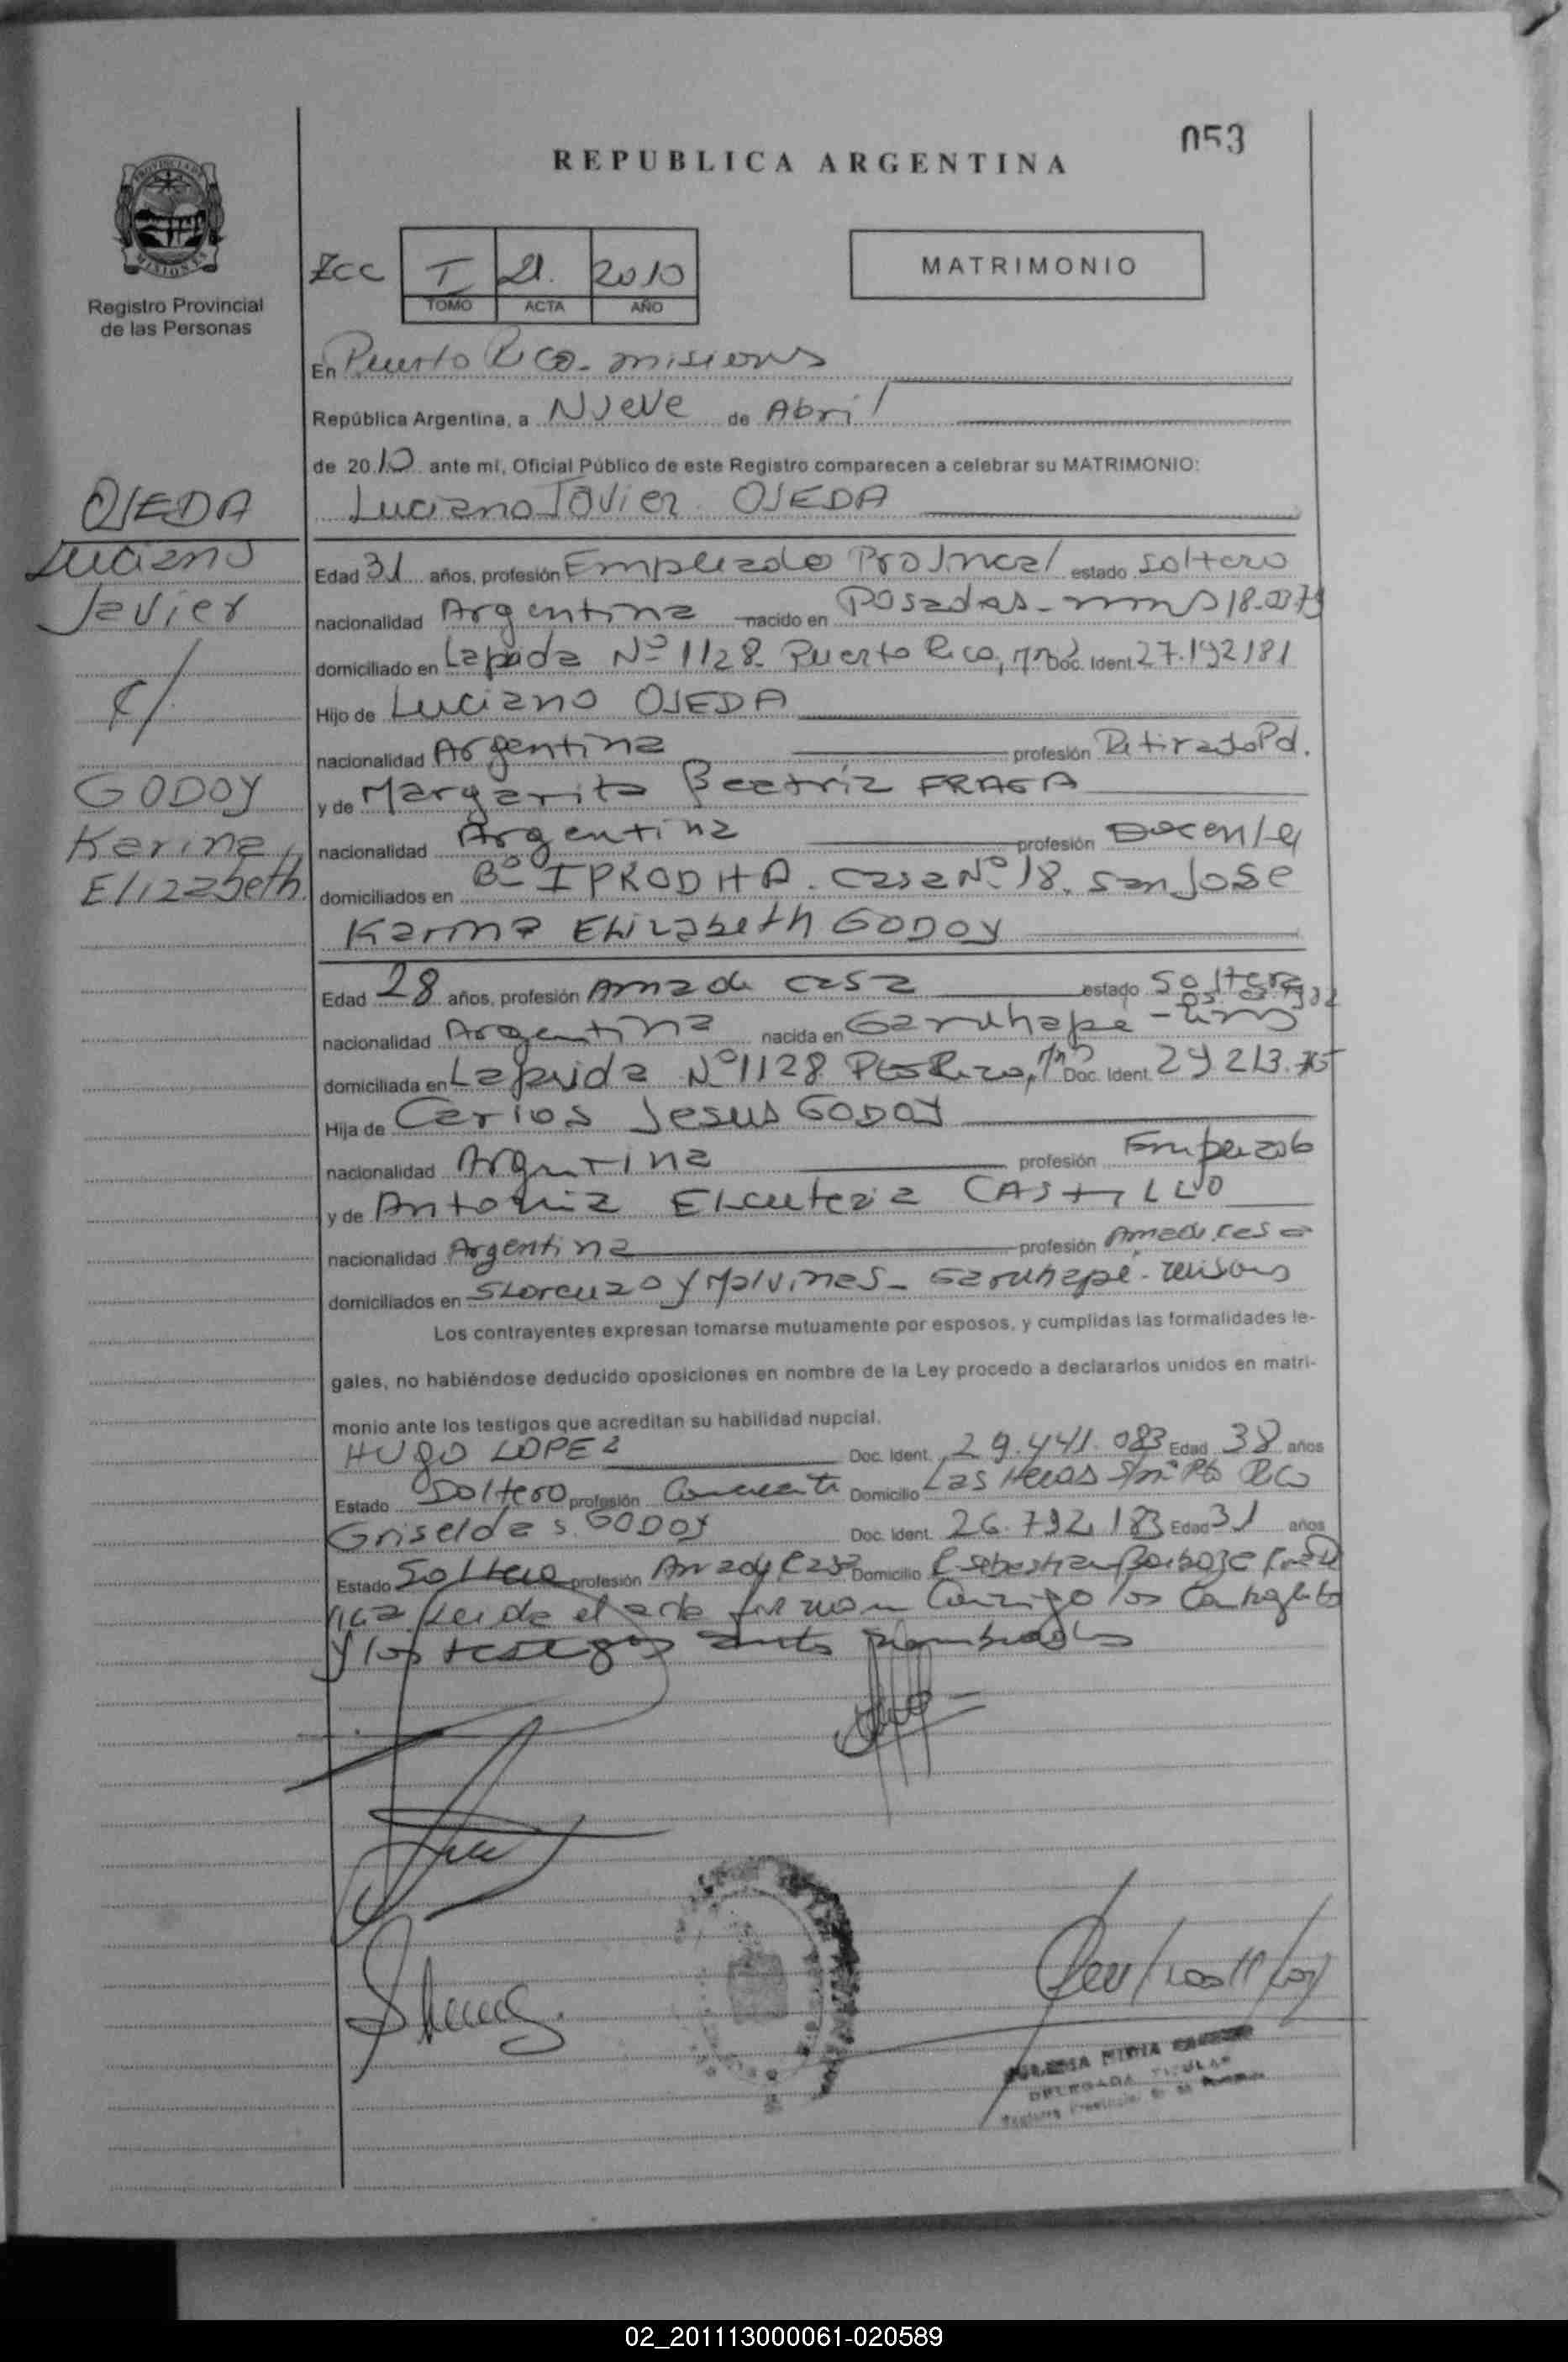 053
REPUBLICA ARGENTINA
MATRIMONIO
Registro Provincial
de las Personas
I 21. 2010
TOMO ACTA AÑO
En Puerto Rico - misiones
República Argentina, a Nueve de Abril
de 2010 ante mí, Oficial Público de este Registro comparecen a celebrar su MATRIMONIO:
OJEDA
Luciano
Javier
c/
GODOY
Karina
Elizabeth
Luciano Javier OJEDA
Edad 31 años, profesión Empleado Provincial estado soltero
nacionalidad Argentina nacido en Posadas - 18-03-79
domiciliado en Laprida Nº 1128 Puerto Rico, Doc. Ident. 27.192181
Hijo de Luciano OJEDA
nacionalidad Argentina profesión Retirado Pol.
y de Margarita Beatriz FRAGA
nacionalidad Argentina profesión Docente
domiciliados en Bº IPRODHA. casa Nº 18. San Jose
Karina Elizabeth GODOY
Edad 28 años, profesión Ama de casa estado soltera
nacionalidad Argentina nacida en Garuhape - 1982
domiciliada en Laprida Nº 1128 Pto Rico, Doc. Ident. 29 213.
Hija de Carlos Jesus GODOY
nacionalidad Argentina profesión Empleado
y de Antonia Eleuteria CASTILLO
nacionalidad Argentina profesión Ama de casa
domiciliados en S Lorenzo y Malvinas - Garuhape - misiones
Los contrayentes expresan tomarse mutuamente por esposos, y cumplidas las formalidades le-
gales, no habiéndose deducido oposiciones en nombre de la Ley procedo a declararlos unidos en matri-
monio ante los testigos que acreditan su habilidad nupcial.
HUgO LOPEZ Doc. Ident. 29.441.083 Edad 38 años
Estado Soltero profesión Domicilio Las Heras S/nº Pto Rico
Griselda S. GODOY Doc. Ident. 26.792.183 Edad 31 años
Estado Soltera profesión Ama de Casa Domicilio
leida el acta firman conmigo los contrayentes
y los testigos antes nombrados
DELEGADA TITULAR
02_201113000061-020589